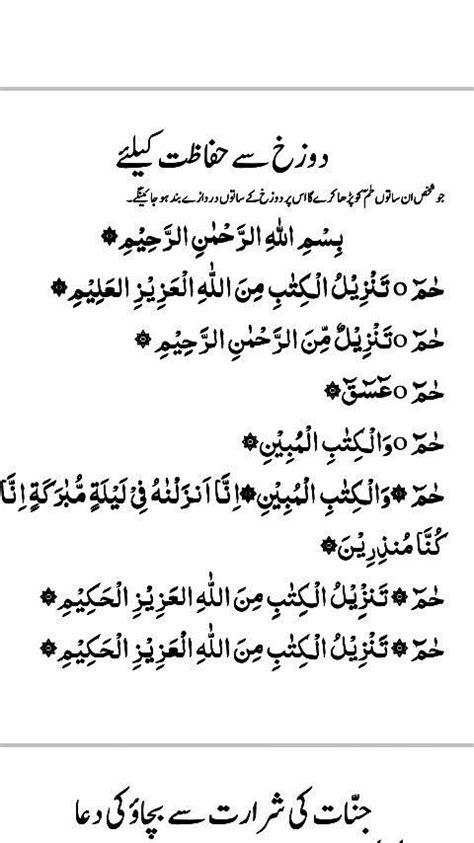 دوزخ سے حفاظت کیلئے
جو شخص ان ساتوں حٰم کو پڑھا کرے گا اس پر دوزخ کے ساتوں دروازے بند ہو جائینگے۔
بِسْمِ اللهِ الرَّحْمٰنِ الرَّحِيْمِ۞
حٰمٓ o تَنْزِيْلُ الْكِتٰبِ مِنَ اللهِ الْعَزِيْزِ الْعَلِيْمِ۞
حٰمٓ o تَنْزِيْلٌ مِّنَ الرَّحْمٰنِ الرَّحِيْمِ۞
حٰمٓ o عٓسٓقٓ۞
حٰمٓ o وَالْكِتٰبِ الْمُبِيْنِ۞
حٰمٓ۞وَالْكِتٰبِ الْمُبِيْنِ۞اِنَّا اَنْزَلْنٰهُ فِيْ لَيْلَةٍ مُّبٰرَكَةٍ اِنَّا
كُنَّا مُنْذِرِيْنَ۞
حٰمٓ۞تَنْزِيْلُ الْكِتٰبِ مِنَ اللهِ الْعَزِيْزِ الْحَكِيْمِ۞
حٰمٓ۞تَنْزِيْلُ الْكِتٰبِ مِنَ اللهِ الْعَزِيْزِ الْحَكِيْمِ۞
جنّات کی شرارت سے بچاؤ کی دعا